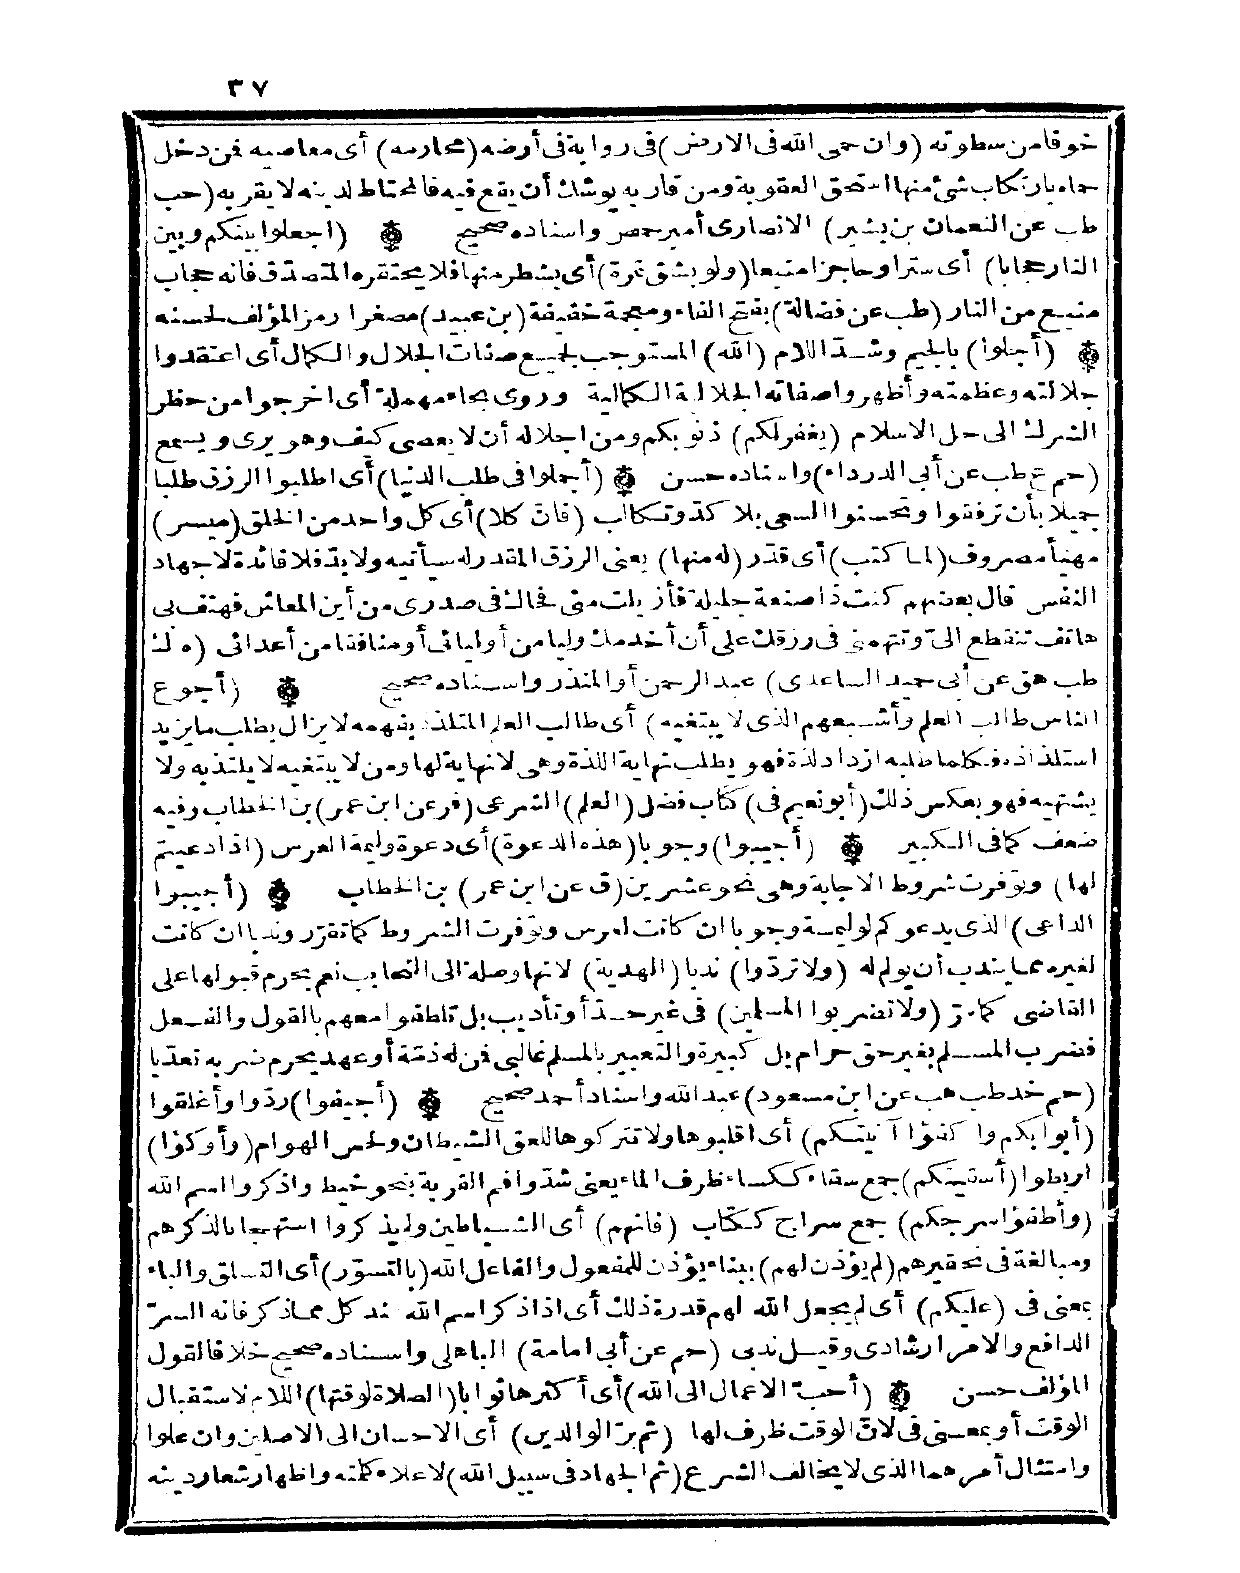 ٣٧
خوفا من سطوته (وان حمى الله فى الارض) فى رواية فى أرضه (محارمه) أى معاصيه فن دخل
حماه بارتكاب شئ منها استحق العقوبة ومن قاربه يوشك أن يقع فيه فالمحتاط لدينه لا يقربه (حب
طب عن النعمان بن بشير) الانصارى أمير حمص واسناده صحيح ۞ (اجعلوا بينكم وبين
النار حجابا) أى سترا وحاجزا منيعا (ولو بشق تمرة) أى بشطر منها فلا يحتقره المتصدق فانه حجاب
منيع من النار (طب عن فضالة) بفتح الفاء ومعجمة خفيفة (بن عبيد) مصغرا رمز المؤلف لحسنه
۞ (أجلوا) بالجيم وشد اللام (الله) المستوجب لجميع صفات الجلال والكمال أى اعتقدوا
جلالته وعظمته وأظهروا صفاته الجلالية الكمالية وروى بحاء مهملة أى اخرجوا من حظر
الشرك الى حل الاسلام (يغفر لكم) ذنوبكم ومن اجلاله أن لا يعصى كيف وهو يرى ويسمع
(حم ع طب عن أبى الدرداء) واسناده حسن ۞ (أجملوا فى طلب الدنيا) أى اطلبوا الرزق طلبا
جميلا بأن ترفقوا وتحسنوا السعى بلا كدّ وتكالب (فان كلا) أى كل واحد من الخلق (ميسر)
مهيأ مصروف (لما كتب) أى قدّر (له منها) يعنى الرزق المقدر له سيأتيه ولا بدّ فلا فائدة لاجهاد
النفس قال بعضهم كنت ذا صنعة جليلة فأزيلت منى فحاك فى صدرى من أين المعاش فهتف بى
هاتف تنقطع الىّ وتتهمنى فى رزقك على أن أخدمك وليا من أوليائى أو منافقا من أعدائى (ه ك
طب هق عن أبى حميد الساعدى) عبد الرحمن أو المنذر واسناده صحيح ۞ (أجوع
الناس طالب العلم وأشبعهم الذى لا يبتغيه) أى طالب العلم المتلذذ بفهمه لا يزال يطلب ما يزيد
استلذاذه فكلما طلبه ازداد لذة فهو يطلب نهاية اللذة وهى لا نهاية لها ومن لا يبتغيه لا يلتذ به ولا
يشتهيه فهو بعكس ذلك (أبو نعيم فى) كتاب فضل (العلم) الشرعى (فر عن ابن عمر) بن الخطاب وفيه
ضعف كما فى الكبير ۞ (أجيبوا) وجوبا (هذه الدعوة) أى دعوة وليمة العرس (اذا دعيتم
لها) وتوفرت شروط الاجابة وهى نحو عشرين (ق عن ابن عمر) بن الخطاب ۞ (أجيبوا
الداعى) الذى يدعوكم لوليمة وجوبا ان كانت لعرس وتوفرت الشروط كما تقرّر وندبا ان كانت
لغيره مما يندب أن يولم له (ولا تردّوا) ندبا (الهدية) لانها وصلة الى التحابب نعم يحرم قبولها على
القاضى كما مرّ (ولا تضربوا المسلمين) فى غير حدّ أو تأديب بل تلطفوا معهم بالقول والفعل
فضرب المسلم بغير حق حرام بل كبيرة والتعبير بالمسلم غالبى فن له ذمّة أو عهد يحرم ضربه تعدّيا
(حم خد طب هب عن ابن مسعود) عبد الله واسناد أحمد صحيح ۞ (أجيفوا) ردّوا وأغلقوا
(أبوابكم واكفؤا آنيتكم) أى اقلبوها ولا تتركوها للعق الشيطان ولحس الهوام (وأوكؤا)
اربطوا (أسقيتكم) جمع سقاء ككساء ظرف الماء يعنى شدّوا فم القربة بنحو خيط واذكروا اسم الله
(وأطفؤا سرجكم) جمع سراج ككتاب (فانهم) أى الشياطين ولم يذكروا استهجانا بالذكرهم
ومبالغة فى تحقيرهم (لم يؤذن لهم) ببناء يؤذن للمفعول والفاعل الله (بالتسوّر) أى التسلق والباء
بمعنى فى (عليكم) أى لم يجعل الله لهم قدرة ذلك أى اذا ذكر اسم الله عند كل مما ذكر فانه السرّ
الدافع والامر ارشادى وقيل ندبى (حم عن أبى امامة) الباهلى واسناده صحيح خلافا لقول
المؤلف حسن ۞ (أحبّ الاعمال الى الله) أى أكثرها ثوابا (الصلاة لوقتها) اللام لاستقبال
الوقت أو بمعنى فى لانّ الوقت ظرف لها (ثم برّ الوالدين) أى الاحسان الى الاصلين وان علوا
وامتثال أمرهما الذى لا يخالف الشرع (ثم الجهاد فى سبيل الله) لاعلاء كلمته واظهار شعار دينه